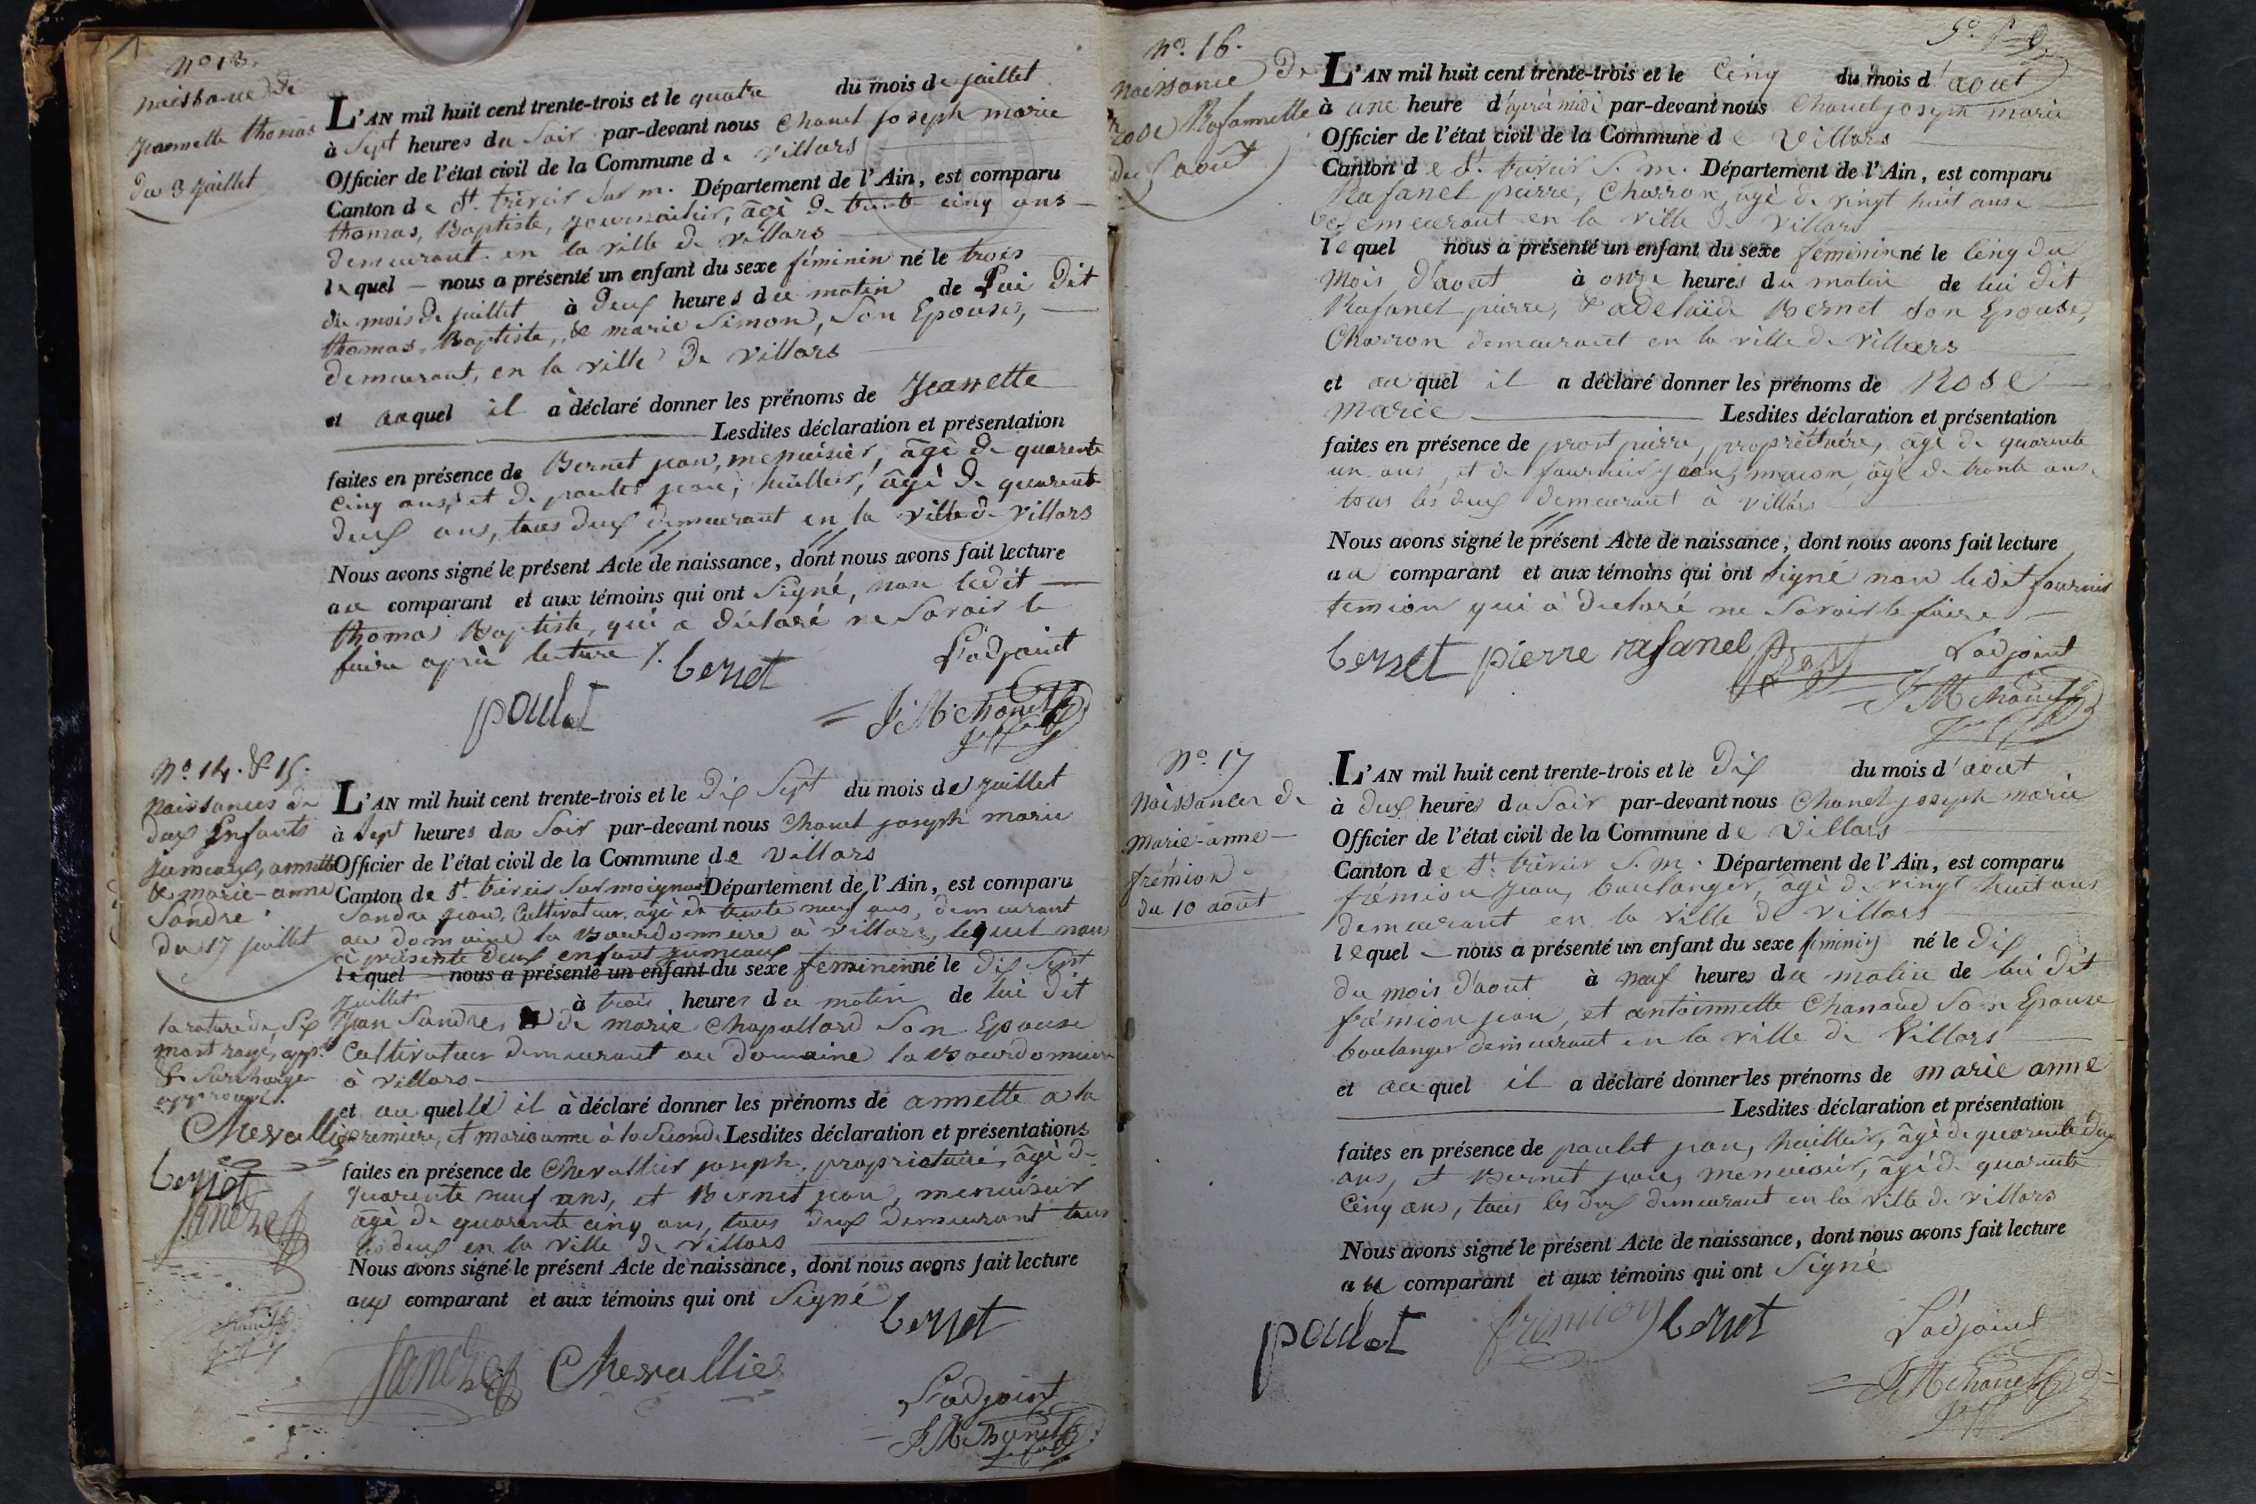 N° 13.
naissance de
Jeannette thomas
du 3 juillet
L'AN mil huit cent trente-trois et le quatre du mois de juillet
à Sept heures du Soir par-devant nous Chanel joseph marie
Officier de l'état civil de la Commune de villars
Canton de St. trivier Sur m. Département de l'Ain, est comparu
thomas, Baptiste, journalier, âgé de trente cinq ans
demeurant en la ville de villars
lequel nous a présenté un enfant du sexe féminin né le trois
du mois de juillet à deux heures du matin de Lui dit
thomas, Baptiste, & marie Simon, Son Epouse,
demeurant, en la ville de villars
et auquel il a déclaré donner les prénoms de Jeanette
Lesdites déclaration et présentation
faites en présence de Bernet jean, menuisier, âgé de quarente
cinq ans, et de poulet jean, huillier, âgé de quarente
deux ans, tous deux demeurant en la ville de villars
Nous avons signé le présent Acte de naissance, dont nous avons fait lecture
au comparant et aux témoins qui ont Signé, non ledit
thomas Baptiste, qui a déclaré ne Savoir le
faire après lecture /. bernet L'adjoint
poulet J M Chanel
N° 14. & 15.
naissances de
deux Enfants
jumeaux, annette
& marie-anne
Sandre
du 17 juillet
L'AN mil huit cent trente-trois et le Dix Sept du mois de juillet
à Sept heures du Soir par-devant nous Chanel joseph marie
Officier de l'état civil de la Commune de villars
Canton de St. trivier Sur moignans Département de l'Ain, est comparu
Sandre jean, Cultivateur, âgé de trente neuf ans, demeurant
au domaine la Bourdonniere a villars, lequel nous
à présenté deux enfant jumeaux
lequel nous a présenté un enfant du sexe féminin né le dix Sept
juillet à trois heures du matin de lui dit
Jean Sandre, & de marie Chapallard Son Epouse
Cultivateur demeurant au domaine la Bourdonniere
à villars
et au quelle il à déclaré donner les prénoms de annette a la
premiere, et marianne à la Seconde Lesdites déclaration et présentations
faites en présence de Chevallier joseph, propriétaire, âgé de
quarente neuf ans, et Bernet jean, menuisier
âgé de quarente cinq ans, tous deux demeurant tous
les deux en la ville de villars
Nous avons signé le présent Acte de naissance, dont nous avons fait lecture
aux comparant et aux témoins qui ont Signé
bernet
Sandre Chevallier
L'adjoint
J M Chanel
la rature de Six
mots rayé, app.
& Surcharge
approuvé.
Chevallier
bernet
Sandre
N° 16.
naissance de
rose Rafannelle
du 5 août
L'AN mil huit cent trente-trois et le Cinq du mois d'aout
à une heure d'après midi par-devant nous Chanel joseph marie
Officier de l'état civil de la Commune de Villars
Canton de St. trivier S. m. Département de l'Ain, est comparu
Rafanel pierre, Charron, âgé de vingt huit ans
demeurant en la ville de villars
lequel nous a présenté un enfant du sexe féminin né le cinq du
mois d'aout à onze heures du matin de lui dit
Rafanel pierre, & adelaïde Bernet Son Epouse,
Charron demeurant en la ville de villars
et au quel il a déclaré donner les prénoms de Rose
Marie Lesdites déclaration et présentation
faites en présence de prost pierre, propriétaire, âgé de quarente
un ans, et de fournier jean, maçon, âgé de trente ans
tous les deux demeurant à villars
Nous avons signé le présent Acte de naissance, dont nous avons fait lecture
au comparant et aux témoins qui ont Signé non le dit fournier
temion qui à déclaré ne Savoir le faire
bernet pierre rafanel Prost L'adjoint
J M Chanel
N° 17
naissance de
marie-anne
frémion
du 10 août
L'AN mil huit cent trente-trois et le Dix du mois d'aout
à deux heures du Soir par-devant nous Chanel joseph marie
Officier de l'état civil de la Commune de Villars
Canton de St. trivier S. m. Département de l'Ain, est comparu
frémion jean, boulanger, âgé de vingt huit ans
demeurant en la ville de villars
lequel nous a présenté un enfant du sexe feminin né le Dix
du mois d'aout à neuf heures du matin de lui dit
frémion jean, et antoinnette Chanaud Son Epouse
boulanger demeurant en la ville de Villars
et au quel il a déclaré donner les prénoms de marie anne
Lesdites déclaration et présentation
faites en présence de poulet jean, huillier, âgé de quarente deux
ans, et Bernet jean, menuisier, âgé de quarente
Cinq ans, tous les deux demeurant en la ville de villars
Nous avons signé le présent Acte de naissance, dont nous avons fait lecture
au comparant et aux témoins qui ont Signé
poulet frémion bernet L'adjoint
J M Chanel